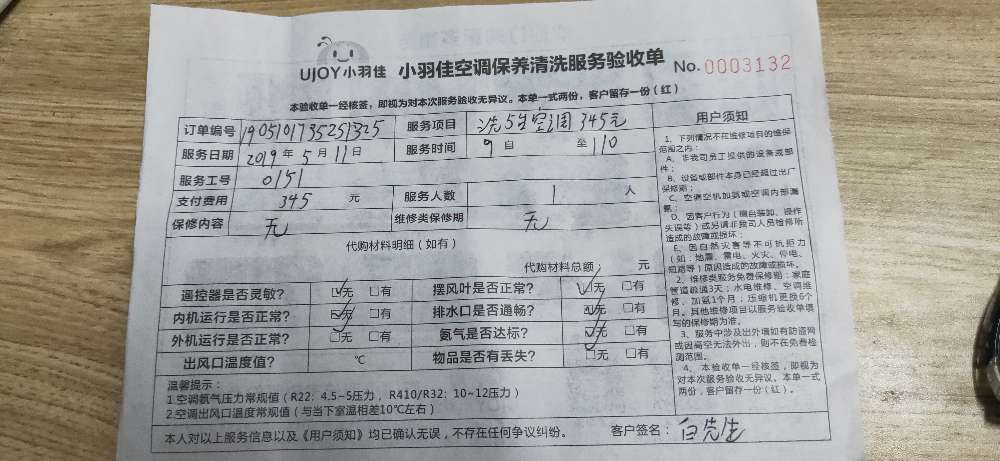 UJOY小羽佳 小羽佳空调保养清洗服务验收单 No.0003132
本验收单一经核签，即视为对本次服务验收无异议。本单一式两份，客户留存一份（红）
订单编号 1905101735251325 服务项目 洗5台空调 345元
服务日期 2019年5月11日 服务时间 9 自 至 110
服务工号 0151
支付费用 345 元 服务人数 1 人
保修内容 无 维修类保修期 无
代购材料明细（如有）
代购材料总额： 元
遥控器是否灵敏？ ☑无 □有 摆风叶是否正常？ ☑无 □有
内机运行是否正常？ ☑无 □有 排水口是否通畅？ ☑无 □有
外机运行是否正常？ □无 □有 氨气是否达标？ ☑无 □有
出风口温度值？ ℃ 物品是否有丢失？ □无 □有
温馨提示：
1.空调氨气压力常规值（R22：4.5~5压力， R410/R32：10~12压力）
2.空调出风口温度常规值（与当下室温相差10℃左右）
本人对以上服务信息以及《用户须知》均已确认无误，不存在任何争议纠纷。 客户签名：白先生
用户须知
1、下列情况不在维修项目的维保
范围之内：
A、非我司员工提供的设备或部
件；
B、设备或部件本身已经超过出厂
保修期；
C、空调空机加氨或空调内部漏
氨；
D、因客户行为（擅自装卸、操作
失误等）或另请非我司人员检修所
造成的故障或损坏；
E、因自然灾害等不可抗拒力
（如：地震、雷电、火灾、停电、
短路等）原因造成的故障或损坏。
2、维修类服务免费保修期：家庭
管道疏通3天；水电维修、空调维
修、加氨1个月；压缩机更换6个
月。其他维修项目以服务验收单填
写的保修期为准。
3、服务中涉及出外墙如有防盗网
或因高空无法外出，则不在免费检
测范围。
4、本验收单一经核签，即视为
对本次服务验收无异议。本单一式
两份，客户留存一份（红）。